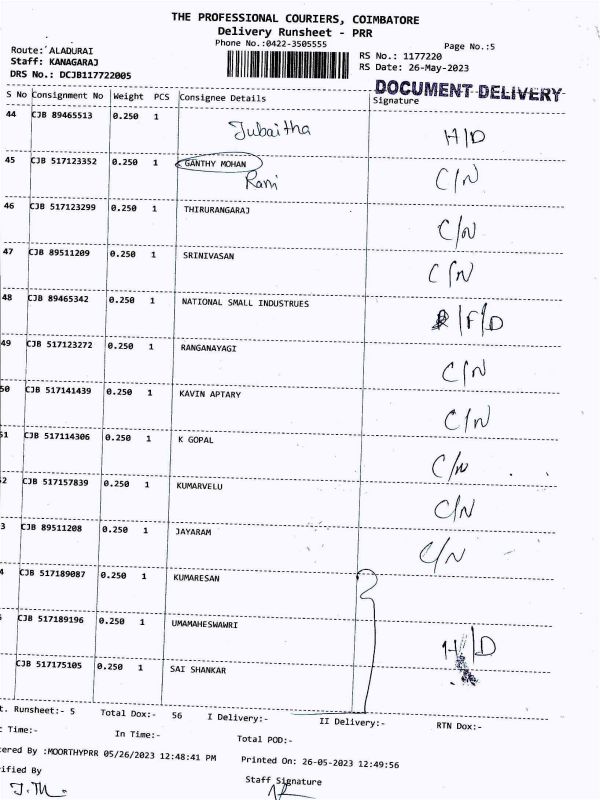 THE PROFESSIONAL COURIERS, COIMBATORE
Delivery Runsheet - PRR
Phone No.:0422-3505555
Page No.:5
Route: ALADURAI
Staff: KANAGARAJ
DRS No.: DCJB117722005
RS No.: 1177220
RS Date: 26-May-2023
DOCUMENT DELIVERY
S No Consignment No Weight PCS Consignee Details Signature
44 CJB 89465513 0.250 1 Jubaitha H/D
45 CJB 517123352 0.250 1 GANTHY MOHAN C/N
Rani
46 CJB 517123299 0.250 1 THIRURANGARAJ C/N
47 CJB 89511209 0.250 1 SRINIVASAN C/N
48 CJB 89465342 0.250 1 NATIONAL SMALL INDUSTRUES /F/D
49 CJB 517123272 0.250 1 RANGANAYAGI C/N
50 CJB 517141439 0.250 1 KAVIN APTARY C/N
51 CJB 517114306 0.250 1 K GOPAL C/N
2 CJB 517157839 0.250 1 KUMARVELU C/N
3 CJB 89511208 0.250 1 JAYARAM C/N
4 CJB 517189087 0.250 1 KUMARESAN
CJB 517189196 0.250 1 UMAMAHESWAWRI H/D
CJB 517175105 0.250 1 SAI SHANKAR
t. Runsheet:- 5 Total Dox:- 56 I Delivery:- II Delivery:- RTN Dox:-
Time:- In Time:- Total POD:-
ered By :MOORTHYPRR 05/26/2023 12:48:41 PM Printed On: 26-05-2023 12:49:56
ified By Staff Signature